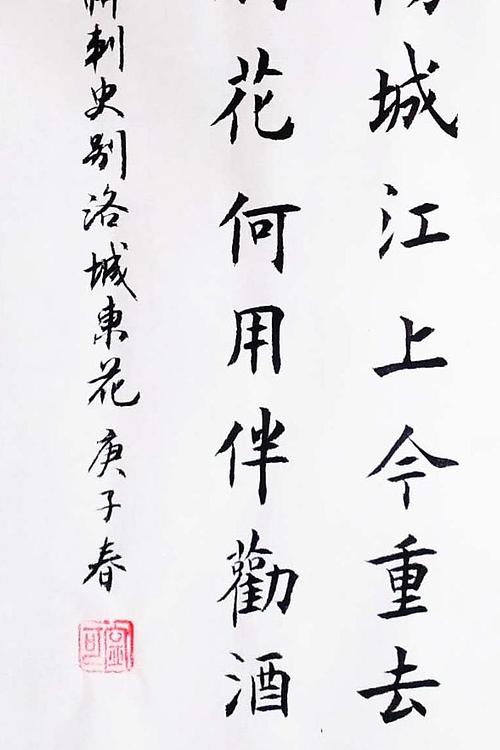 城江上今重去
花何用伴勸酒
刺史别洛城東花 庚子春